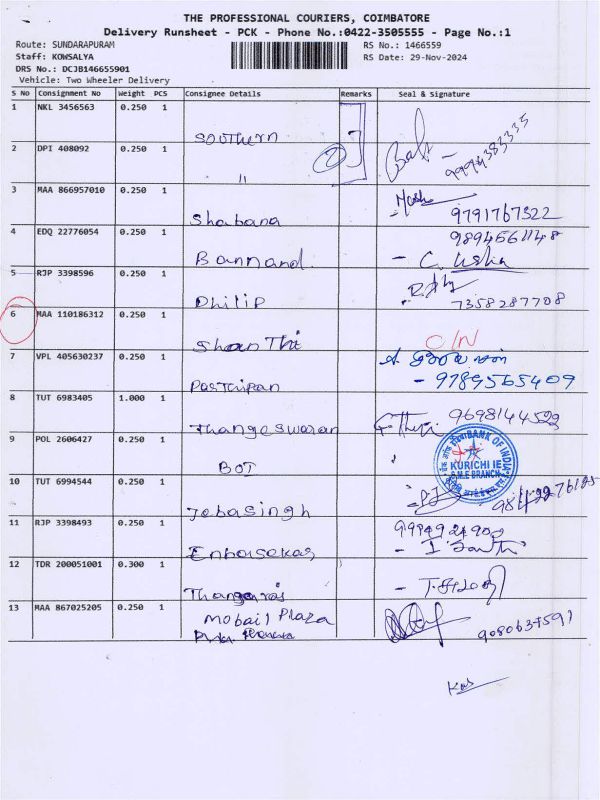 THE PROFESSIONAL COURIERS, COIMBATORE
Delivery Runsheet - PCK - Phone No.:0422-3505555 - Page No.:1
Route: SUNDARAPURAM
RS No.: 1466559
Staff: KOWSALYA
RS Date: 29-Nov-2024
DRS No.: DCJB146655901
Vehicle: Two Wheeler Delivery
S No Consignment No Weight PCS Consignee Details Remarks Seal & Signature
1 NKL 3456563 0.250 1
Southern
2 DPI 408092 0.250 1
"
3 MAA 866957010 0.250 1
Shabana 9791767322
4 EDQ 22776054 0.250 1 9894561148
Bannand - C. Usha
5 RJP 3398596 0.250 1
Philip 7358287708
6 MAA 110186312 0.250 1
Shan Thi O/N
7 VPL 405630237 0.250 1
Parthipan - 9789565409
8 TUT 6983405 1.000 1
Thangeswaran 9698144522
9 POL 2606427 0.250 1
BOT
BANK OF INDIA
KURICHI IE
S.M.E BRANCH
10 TUT 6994544 0.250 1
Jebasingh
11 RJP 3398493 0.250 1
Enbasekar
12 TDR 200051001 0.300 1
Thangaraj
13 MAA 867025205 0.250 1
Mobail Plaza
9080637591